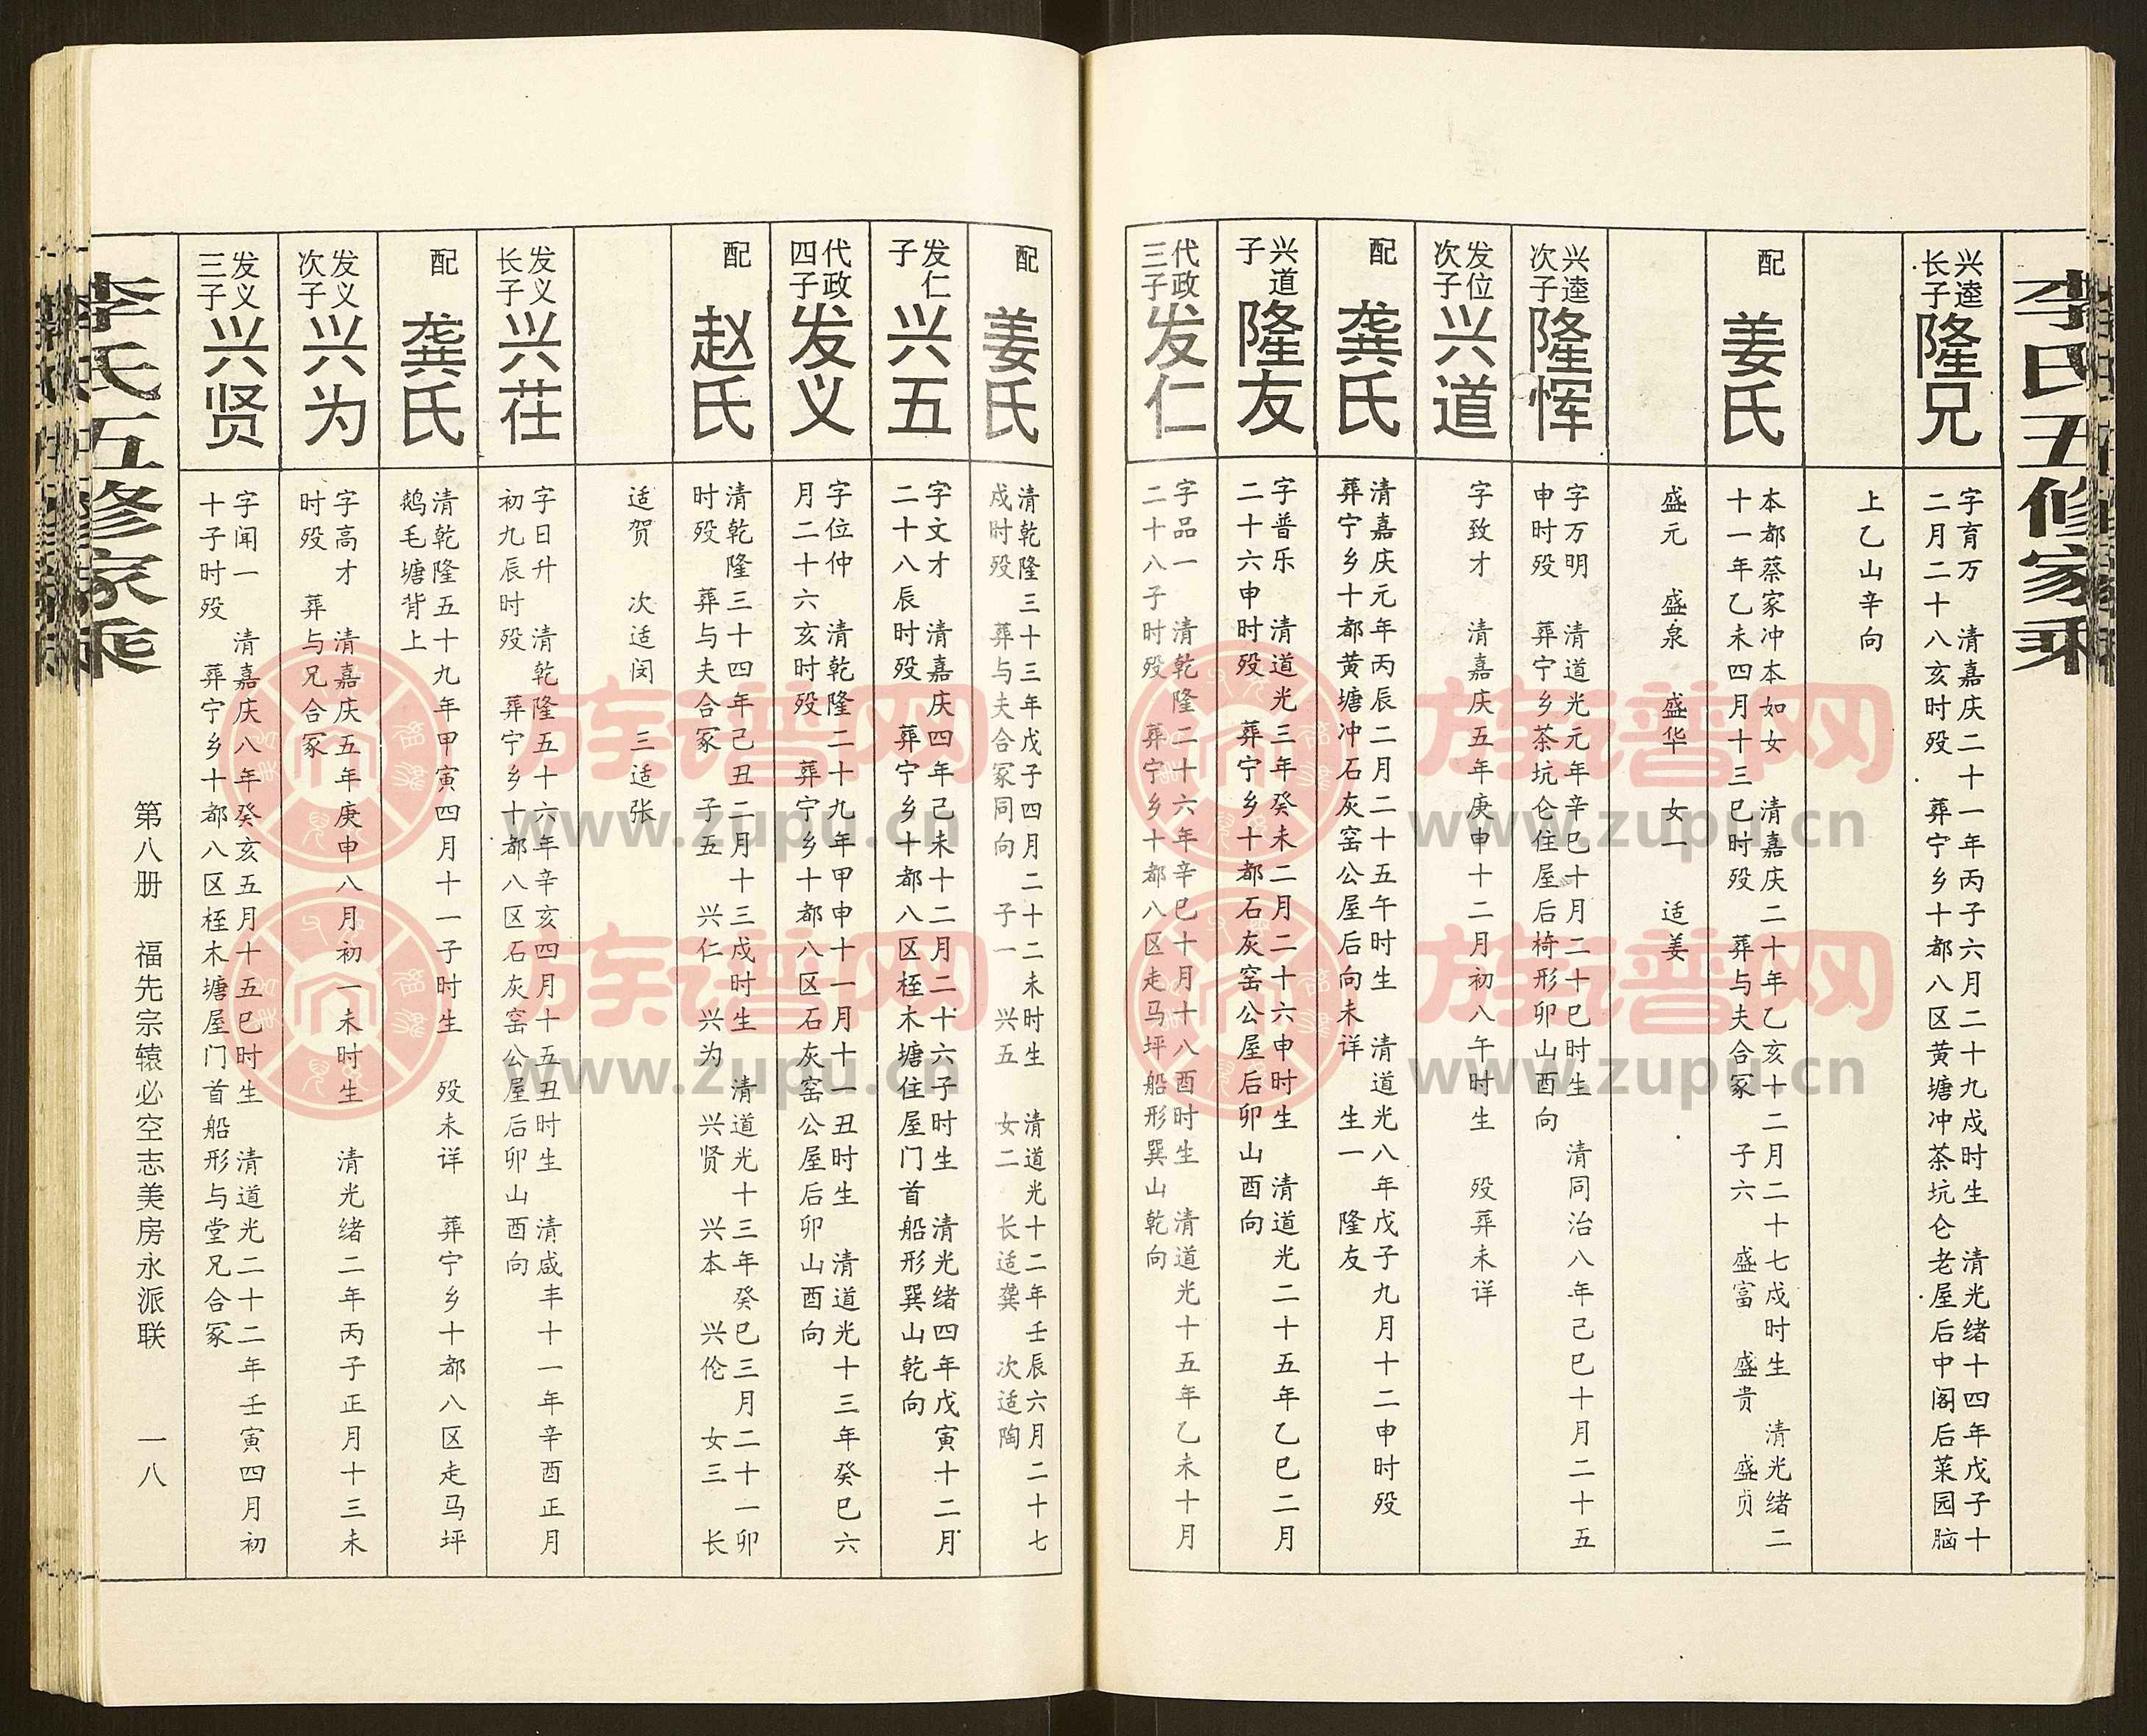 李氏五修家乘
兴逵
长子
隆兄
字育万 清嘉庆二十一年丙子六月二十九戌时生 清光绪十四年戊子十
二月二十八亥时殁 葬宁乡十都八区黄塘冲茶坑仑老屋后中阁后菜园脑
上乙山辛向
配
姜氏
本都蔡家冲本如女 清嘉庆二十年乙亥十二月二十七戌时生 清光绪二
十一年乙未四月十三巳时殁 葬与夫合冢 子六 盛富 盛贵 盛贞
盛元 盛泉 盛华 女一 适姜
兴逵
次子
隆恽
字万明 清道光元年辛巳十月二十巳时生 清同治八年己巳十月二十五
申时殁 葬宁乡茶坑仑住屋后椅形卯山酉向
发位
次子
兴道
字致才 清嘉庆五年庚申十二月初八午时生 殁葬未详
配
龚氏
清嘉庆元年丙辰二月二十五午时生 清道光八年戊子九月十二申时殁
葬宁乡十都黄塘冲石灰窑公屋后向未详 生一 隆友
兴道
子
隆友
字普乐 清道光三年癸未二月二十六申时生 清道光二十五年乙巳二月
二十六申时殁 葬宁乡十都石灰窑公屋后卯山酉向
代政
三子
发仁
字品一 清乾隆二十六年辛巳十月十八酉时生 清道光十五年乙未十月
二十八子时殁 葬宁乡十都八区走马坪船形巽山乾向
配
姜氏
清乾隆三十三年戊子四月二十二未时生 清道光十二年壬辰六月二十七
戌时殁 葬与夫合冢同向 子一 兴五 女二 长适龚 次适陶
发仁
子
兴五
字文才 清嘉庆四年己未十二月二十六子时生 清光绪四年戊寅十二月
二十八辰时殁 葬宁乡十都八区桎木塘住屋门首船形巽山乾向
代政
四子
发义
字位仲 清乾隆二十九年甲申十一月十一丑时生 清道光十三年癸巳六
月二十六亥时殁 葬宁乡十都八区石灰窑公屋后卯山酉向
配
赵氏
清乾隆三十四年己丑二月十三戌时生 清道光十三年癸巳三月二十一卯
时殁 葬与夫合冢 子五 兴仁 兴为 兴贤 兴本 兴伦 女三 长
适贺 次适闵 三适张
发义
长子
兴茌
字日升 清乾隆五十六年辛亥四月十五丑时生 清咸丰十一年辛酉正月
初九辰时殁 葬宁乡十都八区石灰窑公屋后卯山酉向
配
龚氏
清乾隆五十九年甲寅四月十一子时生 殁未详 葬宁乡十都八区走马坪
鹅毛塘背上
发义
次子
兴为
字高才 清嘉庆五年庚申八月初一未时生 清光绪二年丙子正月十三未
时殁 葬与兄合冢
发义
三子
兴贤
字闻一 清嘉庆八年癸亥五月十五巳时生 清道光二十二年壬寅四月初
十子时殁 葬宁乡十都八区桎木塘屋门首船形与堂兄合冢
李氏五修家乘
第八册 福先宗辕必空志美房永派联 一八
族谱网
www.zupu.cn
族谱网
www.zupu.cn
族谱网
www.zupu.cn
族谱网
www.zupu.cn